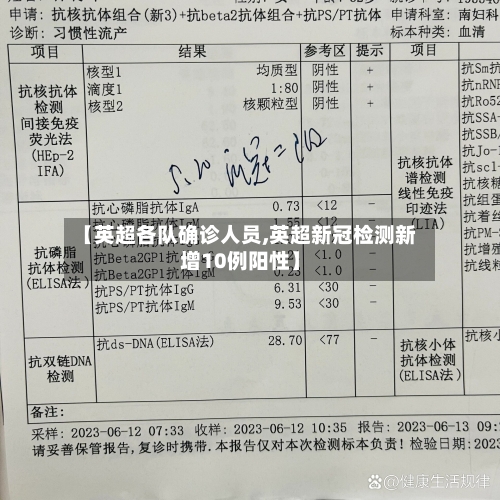 申请: 抗核抗体组合(新3)+抗beta2抗体组合+抗PS/PT抗体 申请科室: 南妇科
诊断: 习惯性流产 标本种类: 血清
项目 结果 参考区 提示 项目
抗核抗体检测间接免疫荧光法(HEp-2 IFA)
核型1 均质型 阴性 +
滴度1 1:80 阴性 +
核型2 核颗粒型 阴性 +
抗核抗体谱检测线性免疫印迹法(LIA)
抗Sm抗
抗nRNP
抗Ro52
抗SSA-
抗SSB
抗Jo-1
抗scl-
抗核糖
抗组蛋
抗着丝
抗PM-S
抗增殖
抗线
抗磷脂抗体检测(ELISA法)
抗心磷脂抗体IgA 0.73 <12 -
抗心磷脂抗体IgM 1.55 <12 -
【英超各队确诊人员,英超新冠检测新增10例阳性】
抗Beta2GP1 <1.0 -
抗Beta2GP1抗体IgM 0.23 <1.0 -
抗PS/PT抗体IgG 6.31 <30 -
抗PS/PT抗体IgM 9.53 <30 -
抗双链DNA检测
抗ds-DNA(ELISA法) 28.70 <77 -
抗核小体抗体检测(ELISA法)
抗核小
备注:
采样: 2023-06-12 07:33 收样: 2023-06-12 10:35 报告: 2023-06-13 09:
请妥善保管报告,复诊时携带.本报告仅对本次检测标本负责! 检验日期:2023
健康生活规律